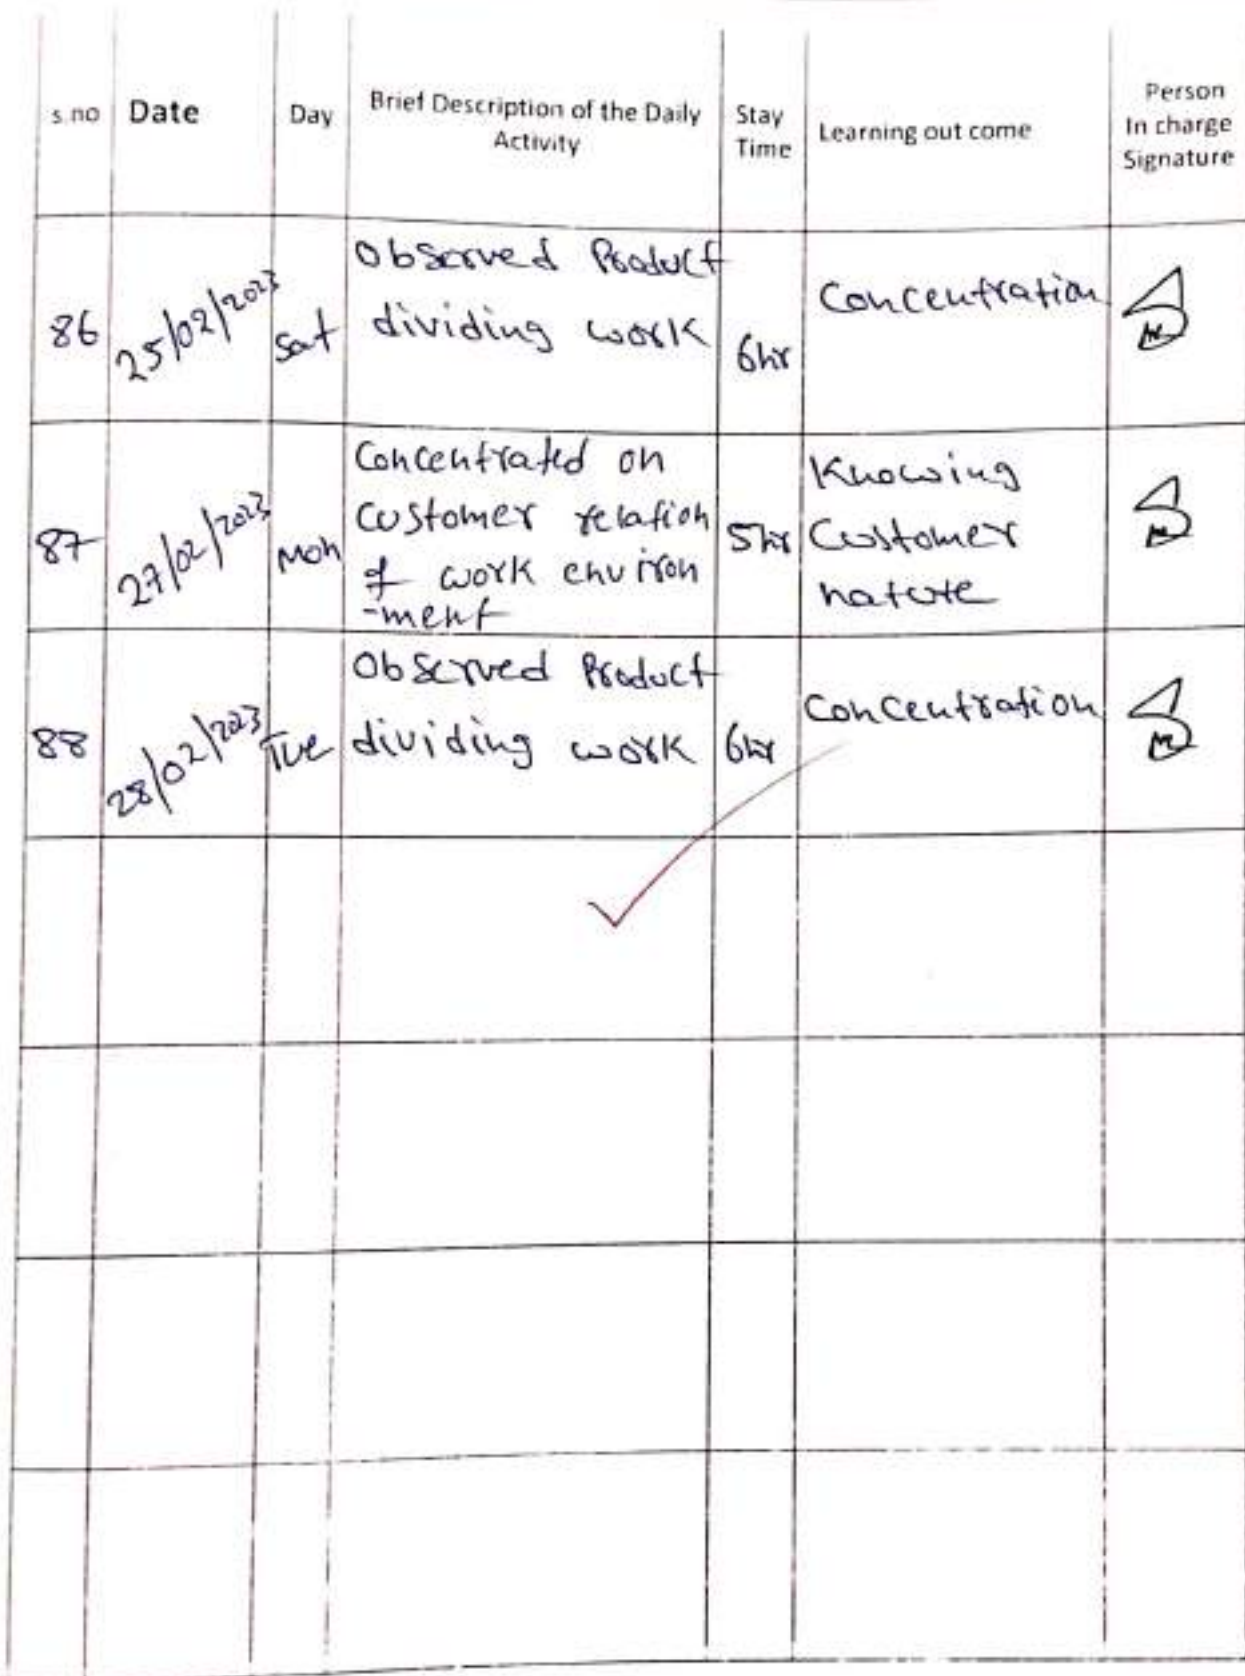 s.no Date Day Brief Description of the Daily Activity Stay Time Learning out come Person In charge Signature
86 25/02/2023 Sat Observed Product
dividing work 6hr Concentration
87 27/02/2023 Mon Concentrated on
customer relation
& work environ
-ment 5hr Knowing
Customer
nature
88 28/02/2023 Tue Observed Product
dividing work 6hr Concentration